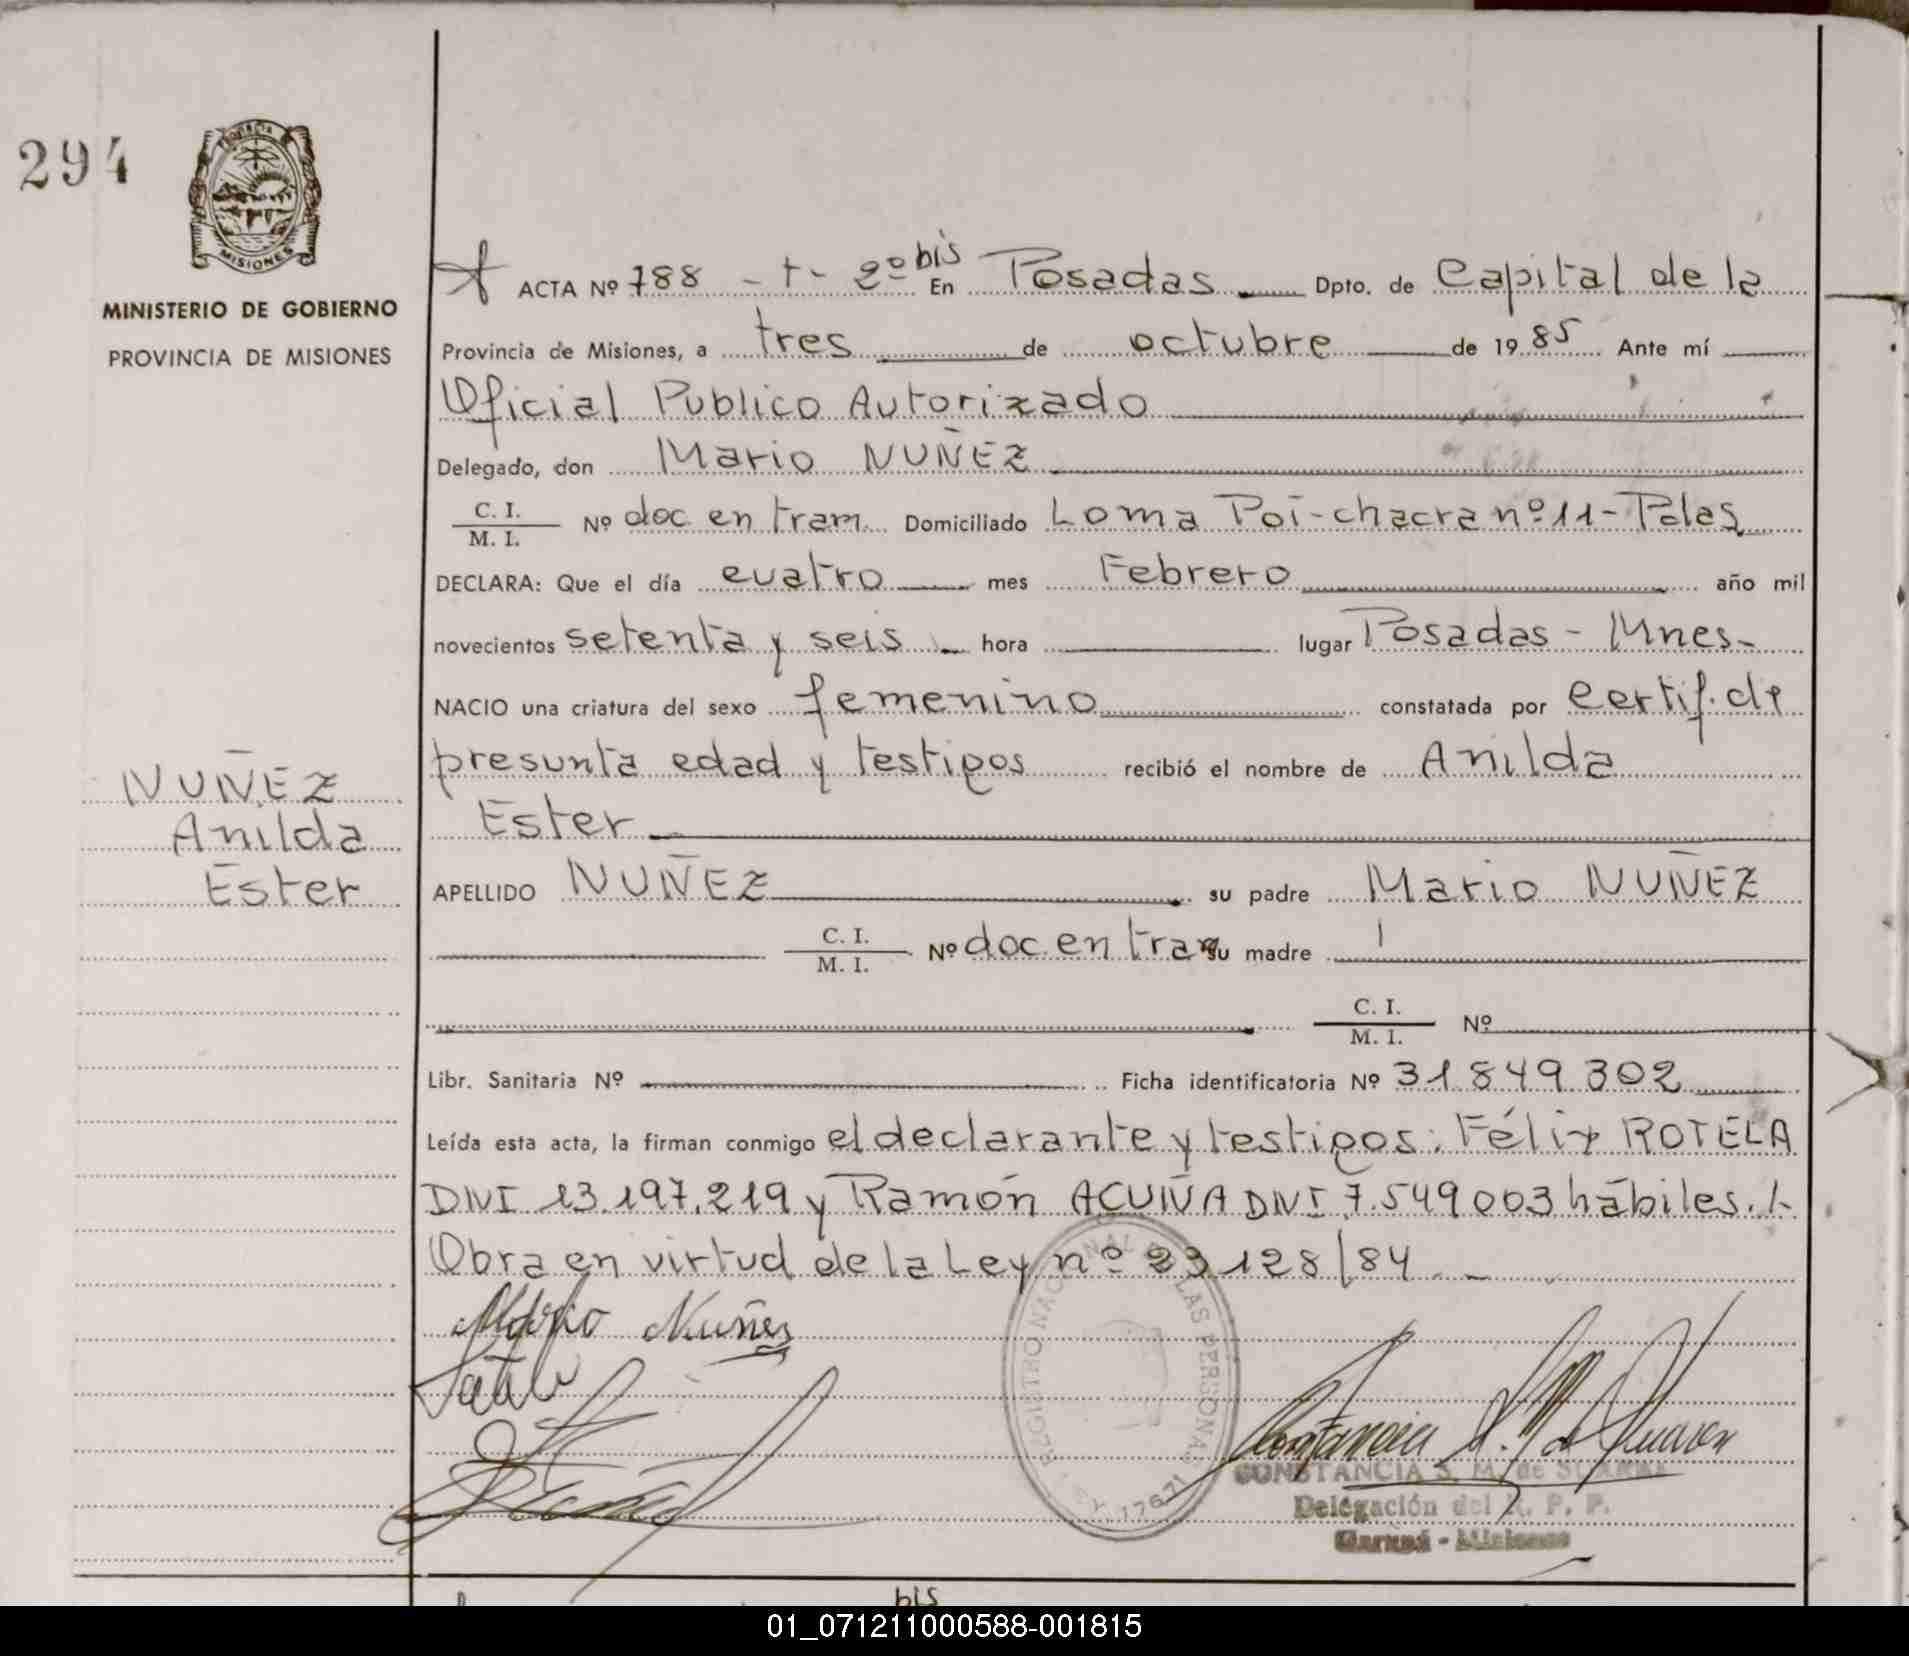 294
PROVINCIA
MISIONES
MINISTERIO DE GOBIERNO
PROVINCIA DE MISIONES
ACTA Nº 788 - t - 2º bis En Posadas Dpto. de Capital de la
Provincia de Misiones, a tres de octubre de 1985 Ante mí
Oficial Publico Autorizado
Delegado, don Mario NUÑEZ
C. I.
M. I.
Nº doc en tram. Domiciliado Loma Poi-chacra nº 11-Pdas
DECLARA: Que el día cuatro mes Febrero año mil
novecientos setenta y seis hora lugar Posadas - Mnes-
NACIO una criatura del sexo femenino constatada por certif. de
presunta edad y testigos recibió el nombre de Anilda
Ester
NUÑEZ
Anilda
Ester
APELLIDO NUÑEZ su padre Mario NUÑEZ
C. I.
M. I.
Nº doc. en tram su madre
C. I.
M. I.
Nº
Libr. Sanitaria Nº Ficha identificatoria Nº 31 849 302
Leída esta acta, la firman conmigo el declarante y testigos: Félix ROTELA
DNI 13.197.219 y Ramón ACUÑA DNI 7.549 003 hábiles./-
Obra en virtud de la Ley nº 23 128/84
Mario Nuñez
REGISTRO NACIONAL DE LAS PERSONAS
LEY 17671
CONSTANCIA S. M. de SUAREZ
Delegación del R. P. P.
Garupá - Misiones
bis
01_071211000588-001815